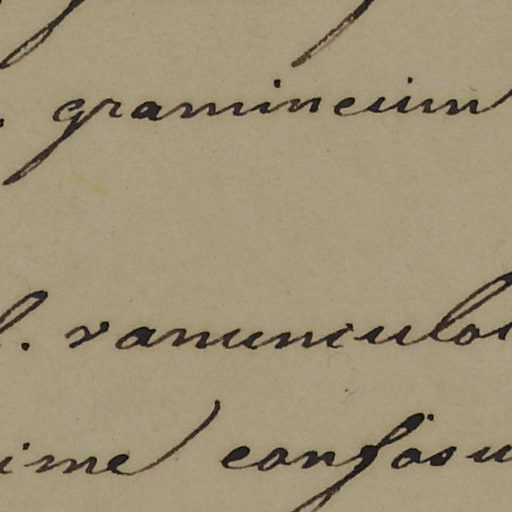 . gramineum
l. ranunculos
ime confos